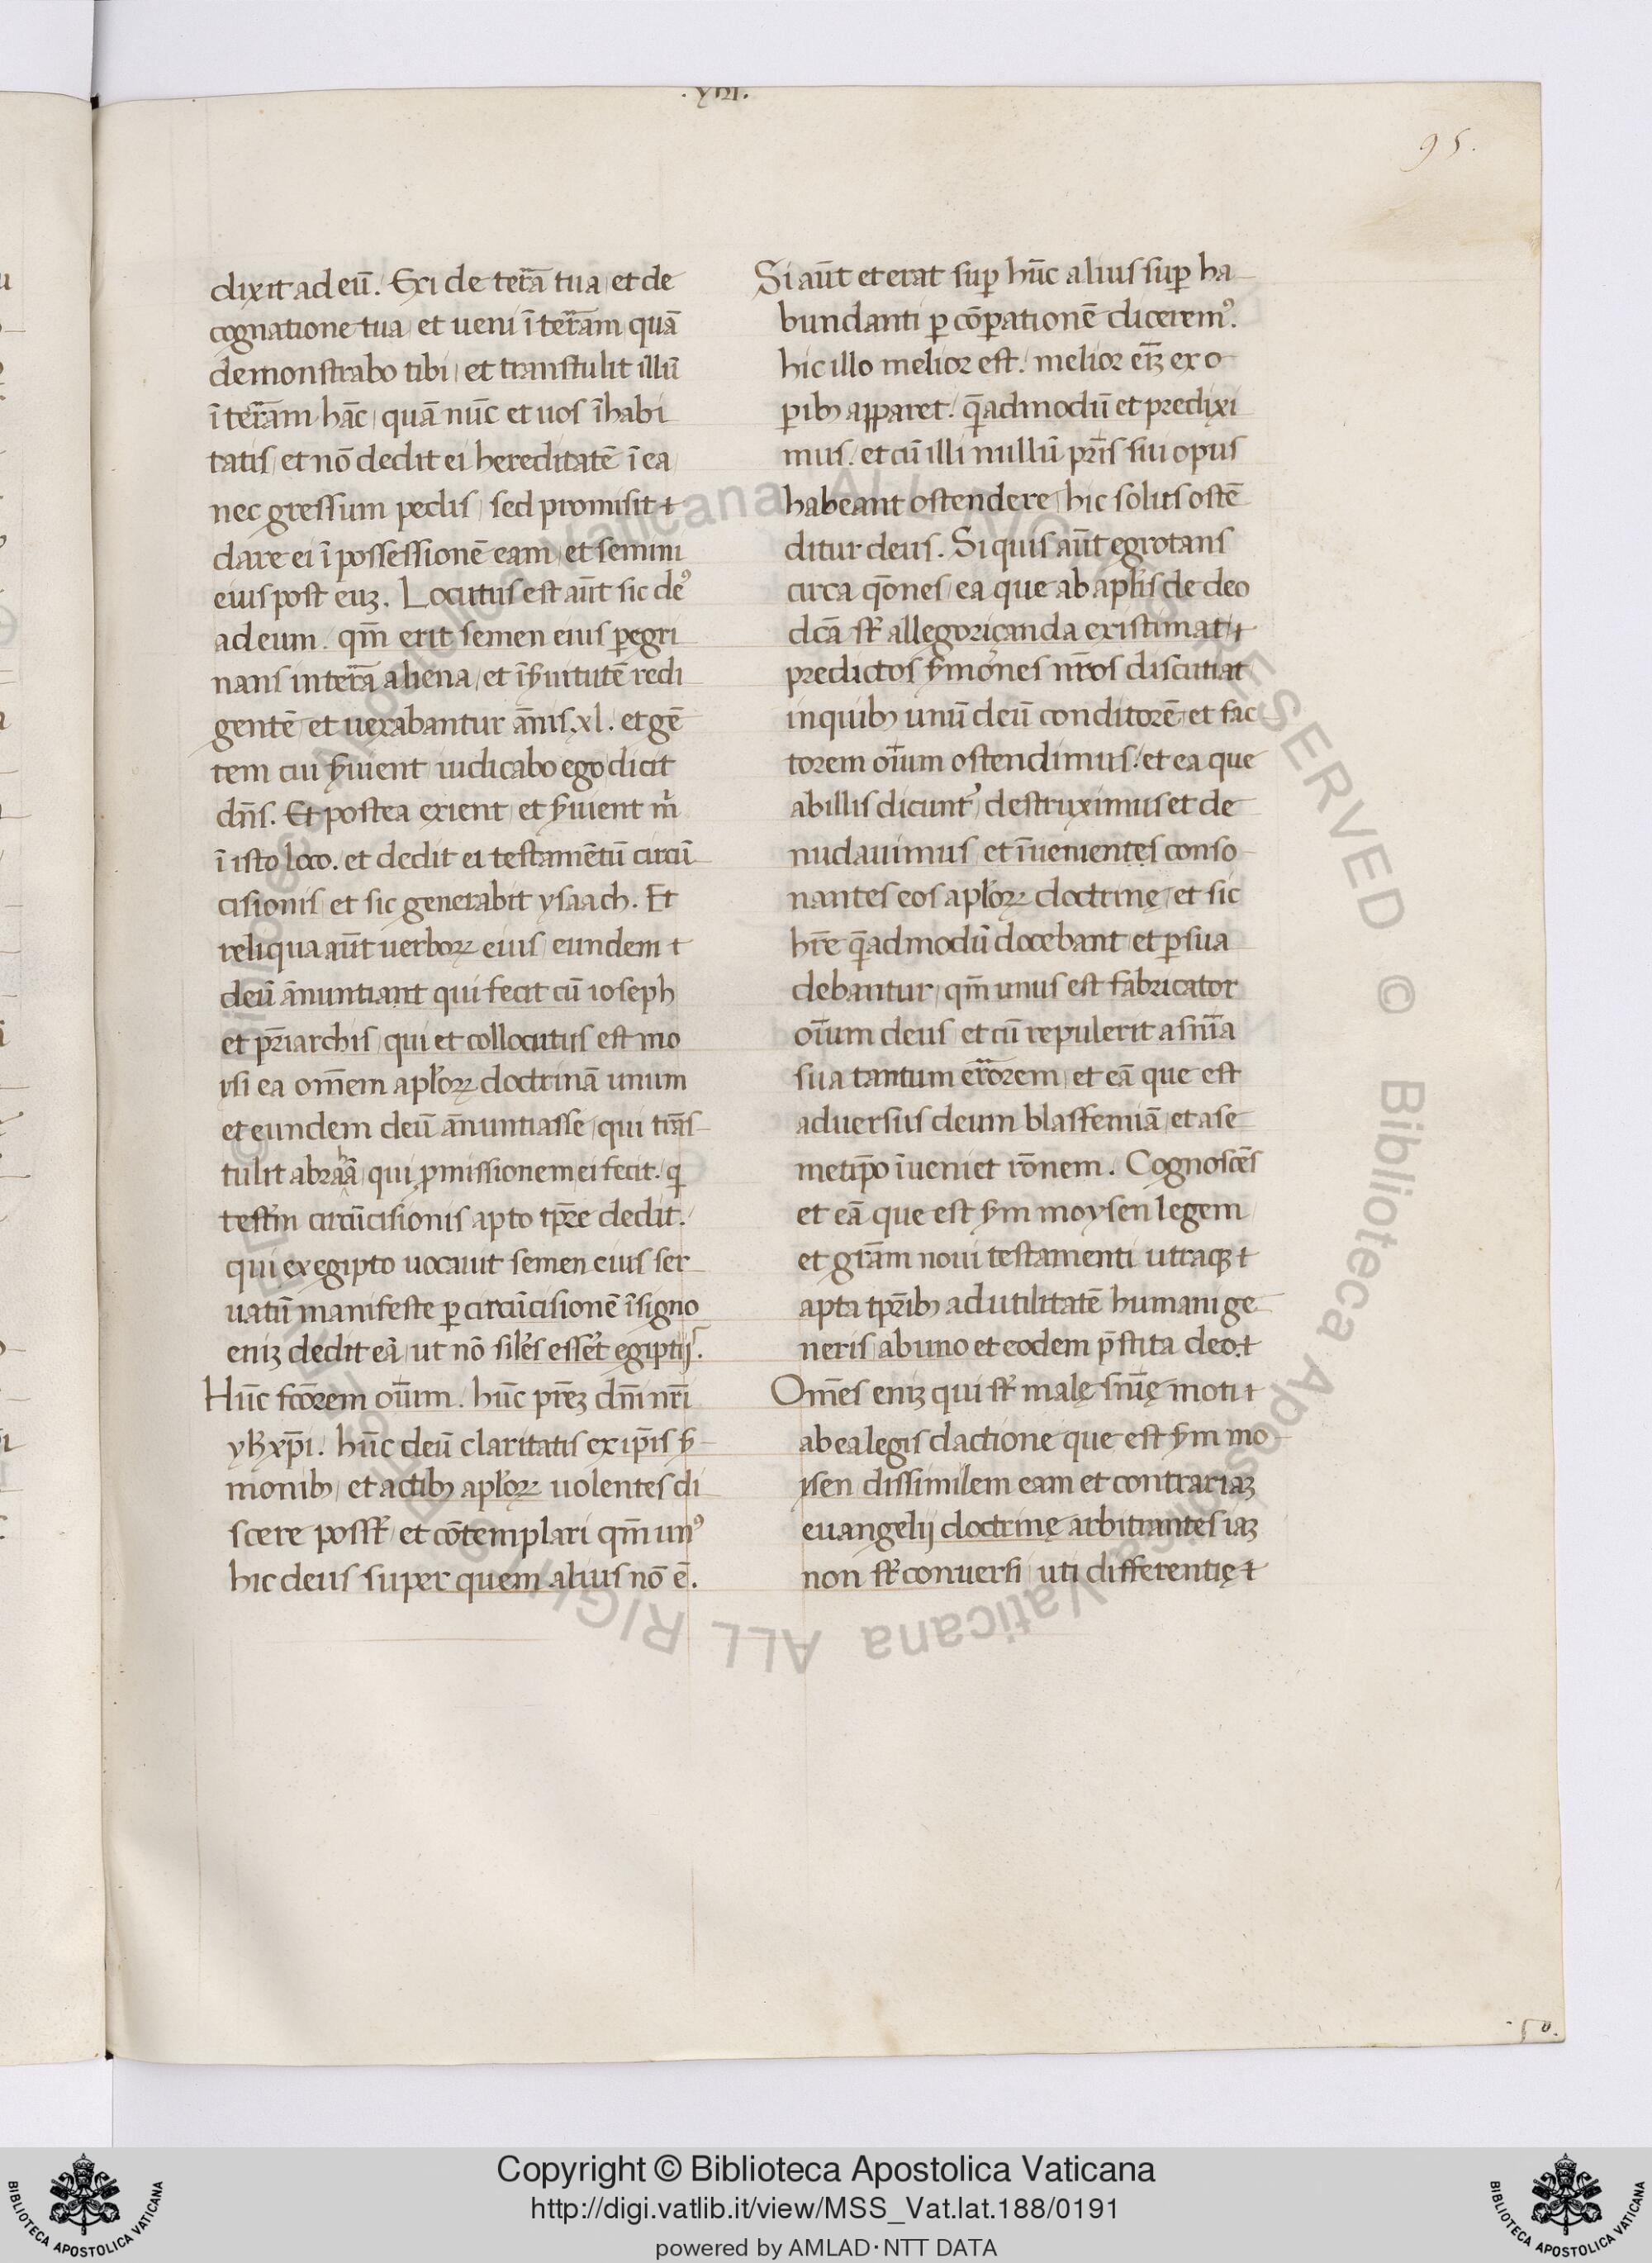 .XIII.
95.
dixit ad eū. Exi de terā tua et de
cognatione tua et ueni ī terām quā
demonstrabo tibi et transtulit illū
ī terām hāc quā nūc et uos īhabi
tatis et nō dedit ei hereditatē ī ea
nec gressum pedis sed promisit
dare ei ī possessionē eam et semini
eius post euꝫ. Locutus est aūt sic deꝰ
ad eum. qm̄ erit semen eius ꝑegri
nans in terā aliena et ī s̄uitutē redi
gentē et uexabantur ānis .xl. et gē
tem cui s̄uient iudicabo ego dicit
dn̄s. Et postea exient et s̄uient m̄
ī isto loco. et dedit ei testamētū circū
cisionis et sic generabit ysaach. Et
reliqua aūt uerboꝝ eius eundem
deū ānuntiant qui fecit cū ioseph
et pr̄iarchis qui et collocutus est mo
isi ea om̄em apl̄oꝝ doctrinā unum
et eundem deū ānuntiasse qui trās
tulit abraā qui ꝓmissionem ei fecit. q̄
testm̄ circūcisionis apto tp̄re dedit.
qui ex egipto uocauit semen eius ser
uatū manifeste ꝑ circūcisionē ī signo
eniꝫ dedit eā ut nō sil̄es esset egiptijs.
Hūc fc̄orem oīum. hūc pr̄eꝫ dn̄i nr̄i
yh̄ xp̄i. hūc deū claritatis ex ip̄is s̄
monibꝫ et actibꝫ apl̄oꝝ uolentes di
scere poss̄t et cōtemplari qm̄ unꝰ
hic deus super quem alius nō ē.
Si aūt et erat suꝑ hūc alius suꝑ ha
bundanti ꝑ cōꝑationē diceremꝰ.
hic illo melior est. melior eīꝫ ex o
ꝑibꝫ apparet. q̄admodū et predixi
mus. et cū illi nullū pr̄is sui opus
habeant ostendere hic solus ostē
ditur deus. Si quis aūt egrotans
circa qōnes ea que ab apl̄is de deo
dc̄a st̄ allegoriçanda existimat
predictos s̄mones nr̄os discutiat
in quibꝫ unū deū conditorē et fac
torem oīum ostendimus. et ea que
ab illis dicunt᷒ destruximus et de
nudauimus et īuenientes conso
nantes eos apl̄oꝝ doctrinę et sic
hr̄e q̄admodū docebant et ꝑsua
debantur qm̄ unus est fabricator
oīum deus et cū repulerit a sn̄ia
sua tantum erōrem et eā que est
aduersus deum blasfemiā et a se
metip̄o īueniet rōnem. Cognoscēs
et eā que est s̄m moysen legem
et grām noui testamenti utraqꝫ
apta tpr̄ibꝫ ad utilitatē humani ge
neris ab uno et eodem p̄stita deo.
Om̄es eniꝫ qui st̄ malę sn̄ię moti
ab ea legis dactione que est s̄m mo
isen dissimilem eam et contrariaꝫ
euangelij doctrinę arbitrantes iaꝫ
non st̄ conuersi uti differentię
.50.
Copyright © Biblioteca Apostolica Vaticana
http://digi.vatlib.it/view/MSS_Vat.lat.188/0191
powered by AMLAD·NTT DATA
BIBLIOTECA APOSTOLICA VATICANA
BIBLIOTECA APOSTOLICA VATICANA